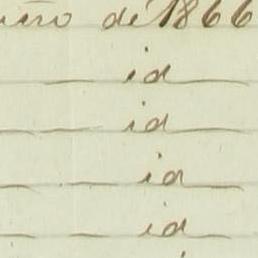 de 1866
id
id
id
id